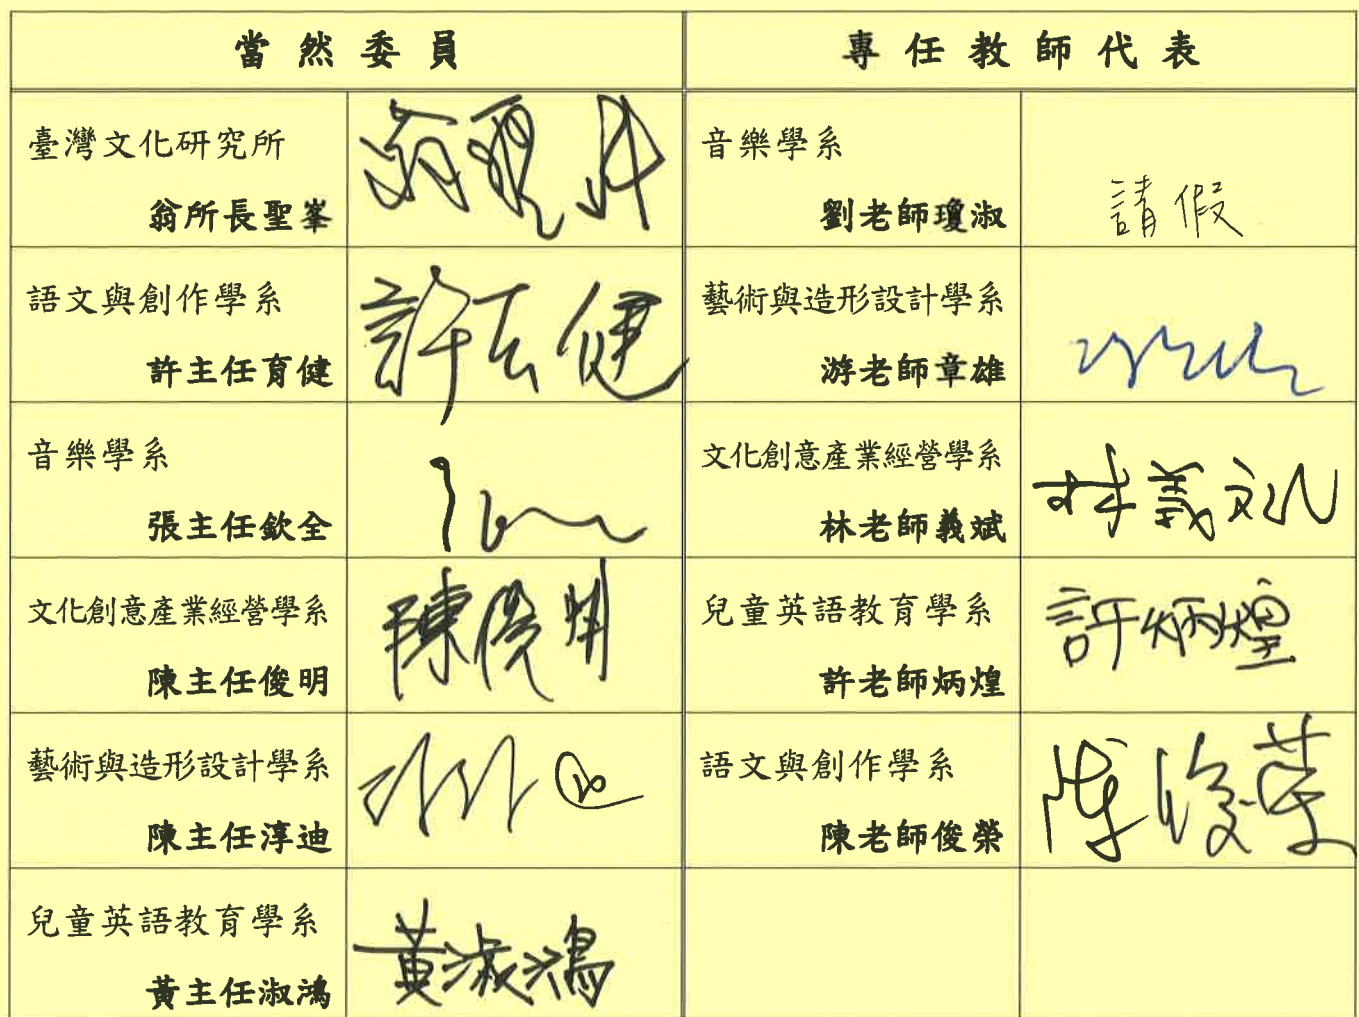 當然委員
專任教師代表
臺灣文化研究所
翁所長聖峯
翁聖峯
音樂學系
劉老師瓊淑
請假
語文與創作學系
許主任育健
許育健
藝術與造形設計學系
游老師章雄
音樂學系
張主任欽全
文化創意產業經營學系
林老師義斌
林義斌
文化創意產業經營學系
陳主任俊明
陳俊明
兒童英語教育學系
許老師炳煌
許炳煌
藝術與造形設計學系
陳主任淳迪
語文與創作學系
陳老師俊榮
陳俊榮
兒童英語教育學系
黃主任淑鴻
黃淑鴻